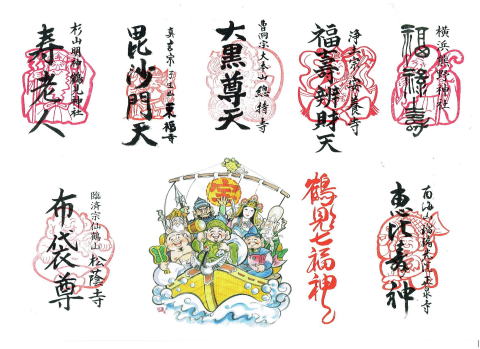 横浜熊野神社
福禄寿
浄土宗 安養寺
福壽辨財天
曹洞宗大本山 總持寺
大黒尊天
真言宗 東福寺
毘沙門天
杉山明神 鶴見神社
寿老人
安泉寺
恵比寿神
鶴見七福神
宝
臨済宗仙鶴山 松蔭寺
布袋尊